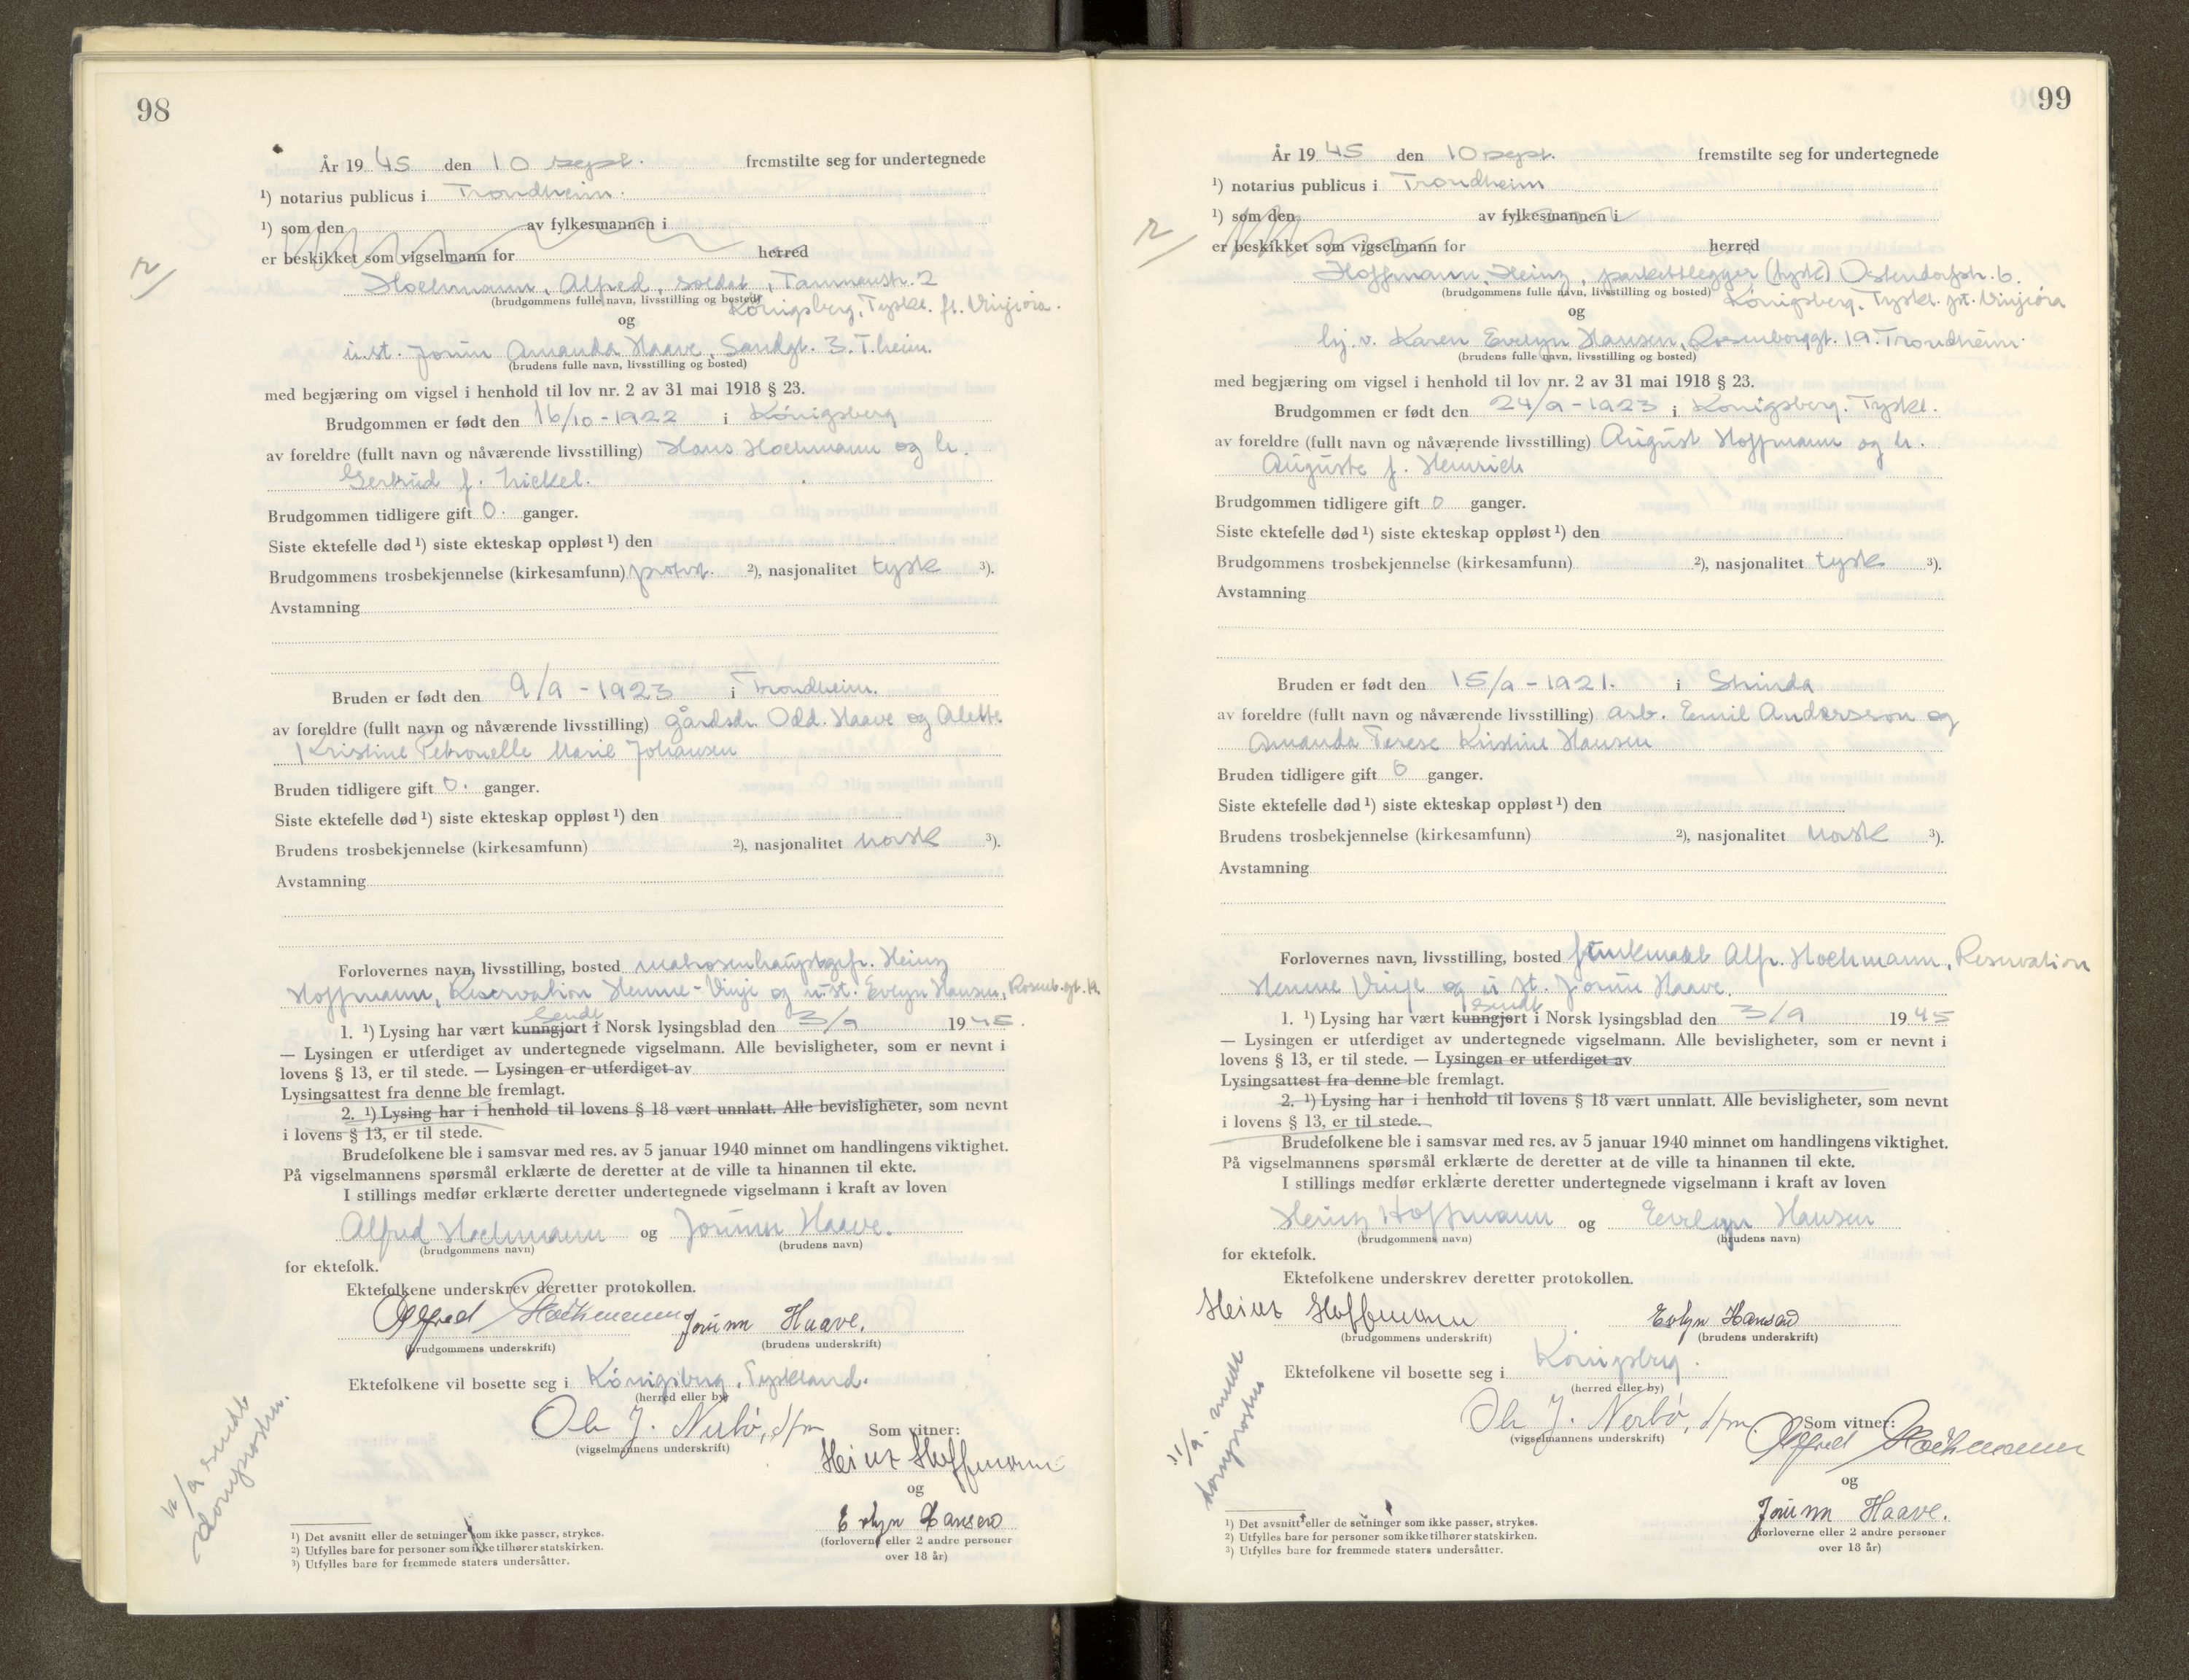 98
År 19 45 den 10 sept. fremstilte seg for undertegnede
¹) notarius publicus i Trondheim.
¹) som den av fylkesmannen i
er beskikket som vigselmann for herred
Hochmann, Alfred, soldat, Tannaustr. 2
(brudgommens fulle navn, livsstilling og bosted)
Königsberg, Tyskl. pt. Vinjeöra.
og
u.st. Jorun Amanda Haave, Sandgt. 3. T.heim.
(brudens fulle navn, livsstilling og bosted)
med begjæring om vigsel i henhold til lov nr. 2 av 31 mai 1918 § 23.
Brudgommen er født den 16/10 - 1922 i Königsberg
av foreldre (fullt navn og nåværende livsstilling) Hans Hochmann og h.
Gertrud f. Nickel.
Brudgommen tidligere gift 0. ganger.
Siste ektefelle død ¹) siste ekteskap oppløst ¹) den
Brudgommens trosbekjennelse (kirkesamfunn) ²), nasjonalitet tysk ³).
Avstamning
Bruden er født den 9/9 - 1923 i Trondheim.
av foreldre (fullt navn og nåværende livsstilling) gårdsdr. Odd. Haave og Alette
Kristine Petronelle Marie Johansen
Bruden tidligere gift 0. ganger.
Siste ektefelle død ¹) siste ekteskap oppløst ¹) den
Brudens trosbekjennelse (kirkesamfunn) ²), nasjonalitet norsk ³).
Avstamning
Forlovernes navn, livsstilling, bosted matrosenhauptgefr. Heinz
Hoffmann, Reservation Hemne-Vinje og u.st. Evelyn Hansen, Rosenb.gt. 19.
sendt
1. ¹) Lysing har vært kunngjort i Norsk lysingsblad den 3/9 1945.
— Lysingen er utferdiget av undertegnede vigselmann. Alle bevisligheter, som er nevnt i
lovens § 13, er til stede. — Lysingen er utferdiget av
Lysingsattest fra denne ble fremlagt.
2. ¹) Lysing har i henhold til lovens § 18 vært unnlatt. Alle bevisligheter, som nevnt
i lovens § 13, er til stede.
Brudefolkene ble i samsvar med res. av 5 januar 1940 minnet om handlingens viktighet.
På vigselmannens spørsmål erklærte de deretter at de ville ta hinannen til ekte.
I stillings medfør erklærte deretter undertegnede vigselmann i kraft av loven
Alfred Hochmann og Jorunn Haave.
(brudgommens navn) (brudens navn)
for ektefolk.
Ektefolkene underskrev deretter protokollen.
Alfred Hochmann Jorunn Haave.
(brudgommens underskrift) (brudens underskrift)
Ektefolkene vil bosette seg i Königsberg, Tyskland.
(herred eller by)
Ole J. Nerbö, dfm
(vigselmannens underskrift)
Som vitner:
Heinz Hoffmann
og
Evelyn Hansen
(forloverne eller 2 andre personer
over 18 år)
11/9 sendt
domprosten.
¹) Det avsnitt eller de setninger som ikke passer, strykes.
²) Utfylles bare for personer som ikke tilhører statskirken.
³) Utfylles bare for fremmede staters undersåtter.
99
År 19 45 den 10 sept. fremstilte seg for undertegnede
¹) notarius publicus i Trondheim
¹) som den av fylkesmannen i
er beskikket som vigselmann for herred
Hoffmann, Heinz, parkettlegger (tysk) Ostendorfstr. 6.
(brudgommens fulle navn, livsstilling og bosted)
Königsberg, Tyskl. pt. Vinjeöra
og
hj. v. Karen Evelyn Hansen, Rosenborggt. 19. Trondheim.
(brudens fulle navn, livsstilling og bosted)
med begjæring om vigsel i henhold til lov nr. 2 av 31 mai 1918 § 23.
Brudgommen er født den 24/9 - 1923 i Königsberg, Tyskl.
av foreldre (fullt navn og nåværende livsstilling) August Hoffmann og h.
Auguste f. Heinrich
Brudgommen tidligere gift 0 ganger.
Siste ektefelle død ¹) siste ekteskap oppløst ¹) den
Brudgommens trosbekjennelse (kirkesamfunn) ²), nasjonalitet tysk ³).
Avstamning
Bruden er født den 15/9 - 1921. i Strinda
av foreldre (fullt navn og nåværende livsstilling) arb. Emil Andersson og
Amanda Terese Kristine Hansen
Bruden tidligere gift 0 ganger.
Siste ektefelle død ¹) siste ekteskap oppløst ¹) den
Brudens trosbekjennelse (kirkesamfunn) ²), nasjonalitet norsk ³).
Avstamning
Forlovernes navn, livsstilling, bosted Alfr. Hochmann, Reservation
Hemne Vinje og u.st. Jorun Haave.
sendt
1. ¹) Lysing har vært kunngjort i Norsk lysingsblad den 3/9 1945
— Lysingen er utferdiget av undertegnede vigselmann. Alle bevisligheter, som er nevnt i
lovens § 13, er til stede. — Lysingen er utferdiget av
Lysingsattest fra denne ble fremlagt.
2. ¹) Lysing har i henhold til lovens § 18 vært unnlatt. Alle bevisligheter, som nevnt
i lovens § 13, er til stede.
Brudefolkene ble i samsvar med res. av 5 januar 1940 minnet om handlingens viktighet.
På vigselmannens spørsmål erklærte de deretter at de ville ta hinannen til ekte.
I stillings medfør erklærte deretter undertegnede vigselmann i kraft av loven
Heinz Hoffmann og Evelyn Hansen
(brudgommens navn) (brudens navn)
for ektefolk.
Ektefolkene underskrev deretter protokollen.
Heinz Hoffmann Evelyn Hansen
(brudgommens underskrift) (brudens underskrift)
Ektefolkene vil bosette seg i Königsberg.
(herred eller by)
Ole J. Nerbö, dfm.
(vigselmannens underskrift)
Som vitner:
Alfred Hochmann
og
Jorunn Haave.
(forloverne eller 2 andre personer
over 18 år)
11/9. sendt
domprosten
¹) Det avsnitt eller de setninger som ikke passer, strykes.
²) Utfylles bare for personer som ikke tilhører statskirken.
³) Utfylles bare for fremmede staters undersåtter.